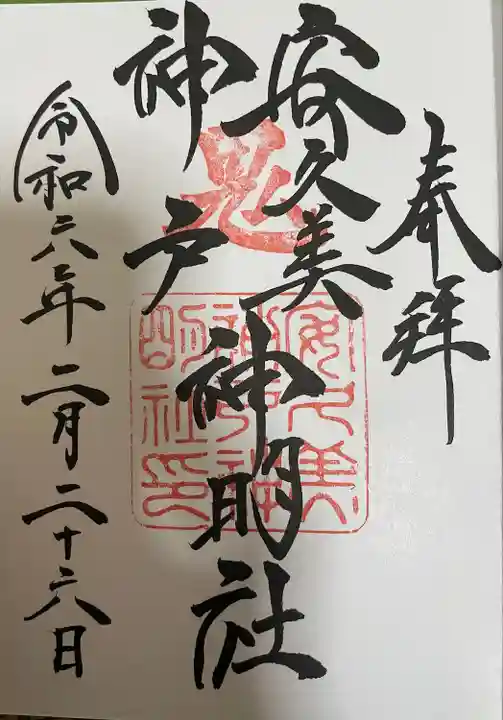 奉拝
安久美
神戸
神明社
鬼
安久美神戸神明社印
令和六年二月二十六日